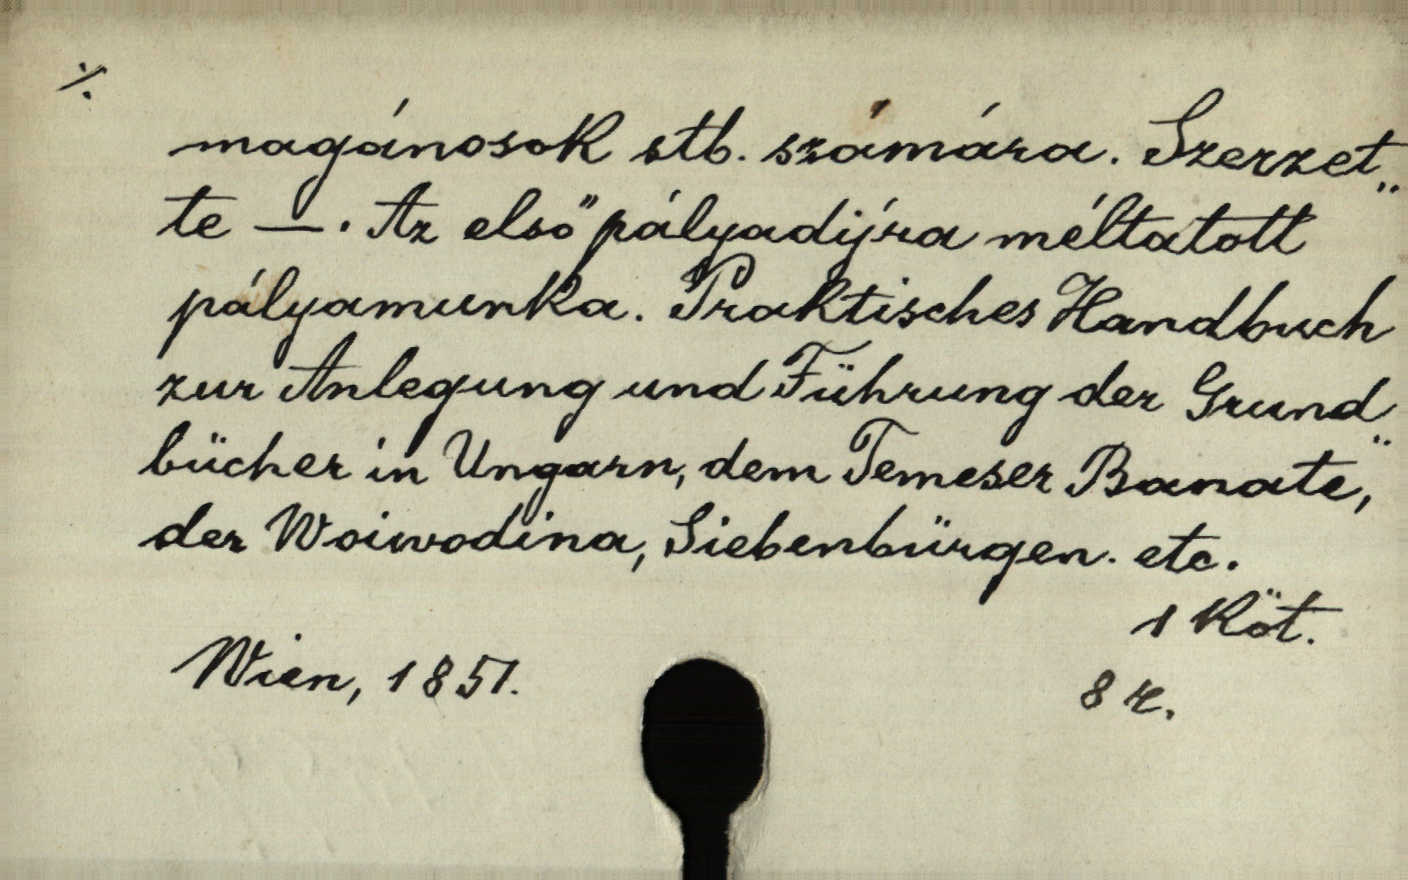 ·/.
magánosok stb. számára. Szerzet„
te —. Az első pályadíjra méltatott
pályamunka. Praktisches Handbuch
zur Anlegung und Führung der Grund„
bücher in Ungarn, dem Temeser Banate,
der Woiwodina, Siebenbürgen. etc.
1 Köt.
Wien, 1851.
8 r.